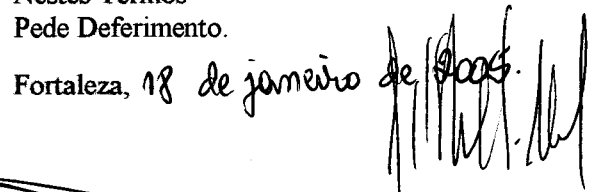 Nestes Termos
Pede Deferimento.
Fortaleza, 18 de janeiro de 2005.